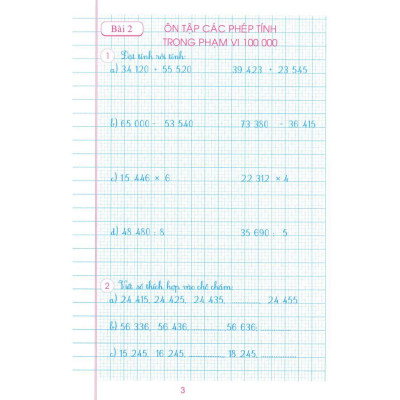 Bài 2
ÔN TẬP CÁC PHÉP TÍNH
TRONG PHẠM VI 100 000
1 Đặt tính rồi tính:
a) 34 120 + 55 520 39 423 + 23 545
b) 65 000 - 53 540 73 380 - 36 415
c) 15 446 × 6 22 312 × 4
d) 48 480 : 8 35 690 : 5
2 Viết số thích hợp vào chỗ chấm:
a) 24 415, 24 425, 24 435, ........ 24 455
b) 56 336, 56 436, ........ 56 636, ........
c) 15 245, 16 245, ........ 18 245, ........
3